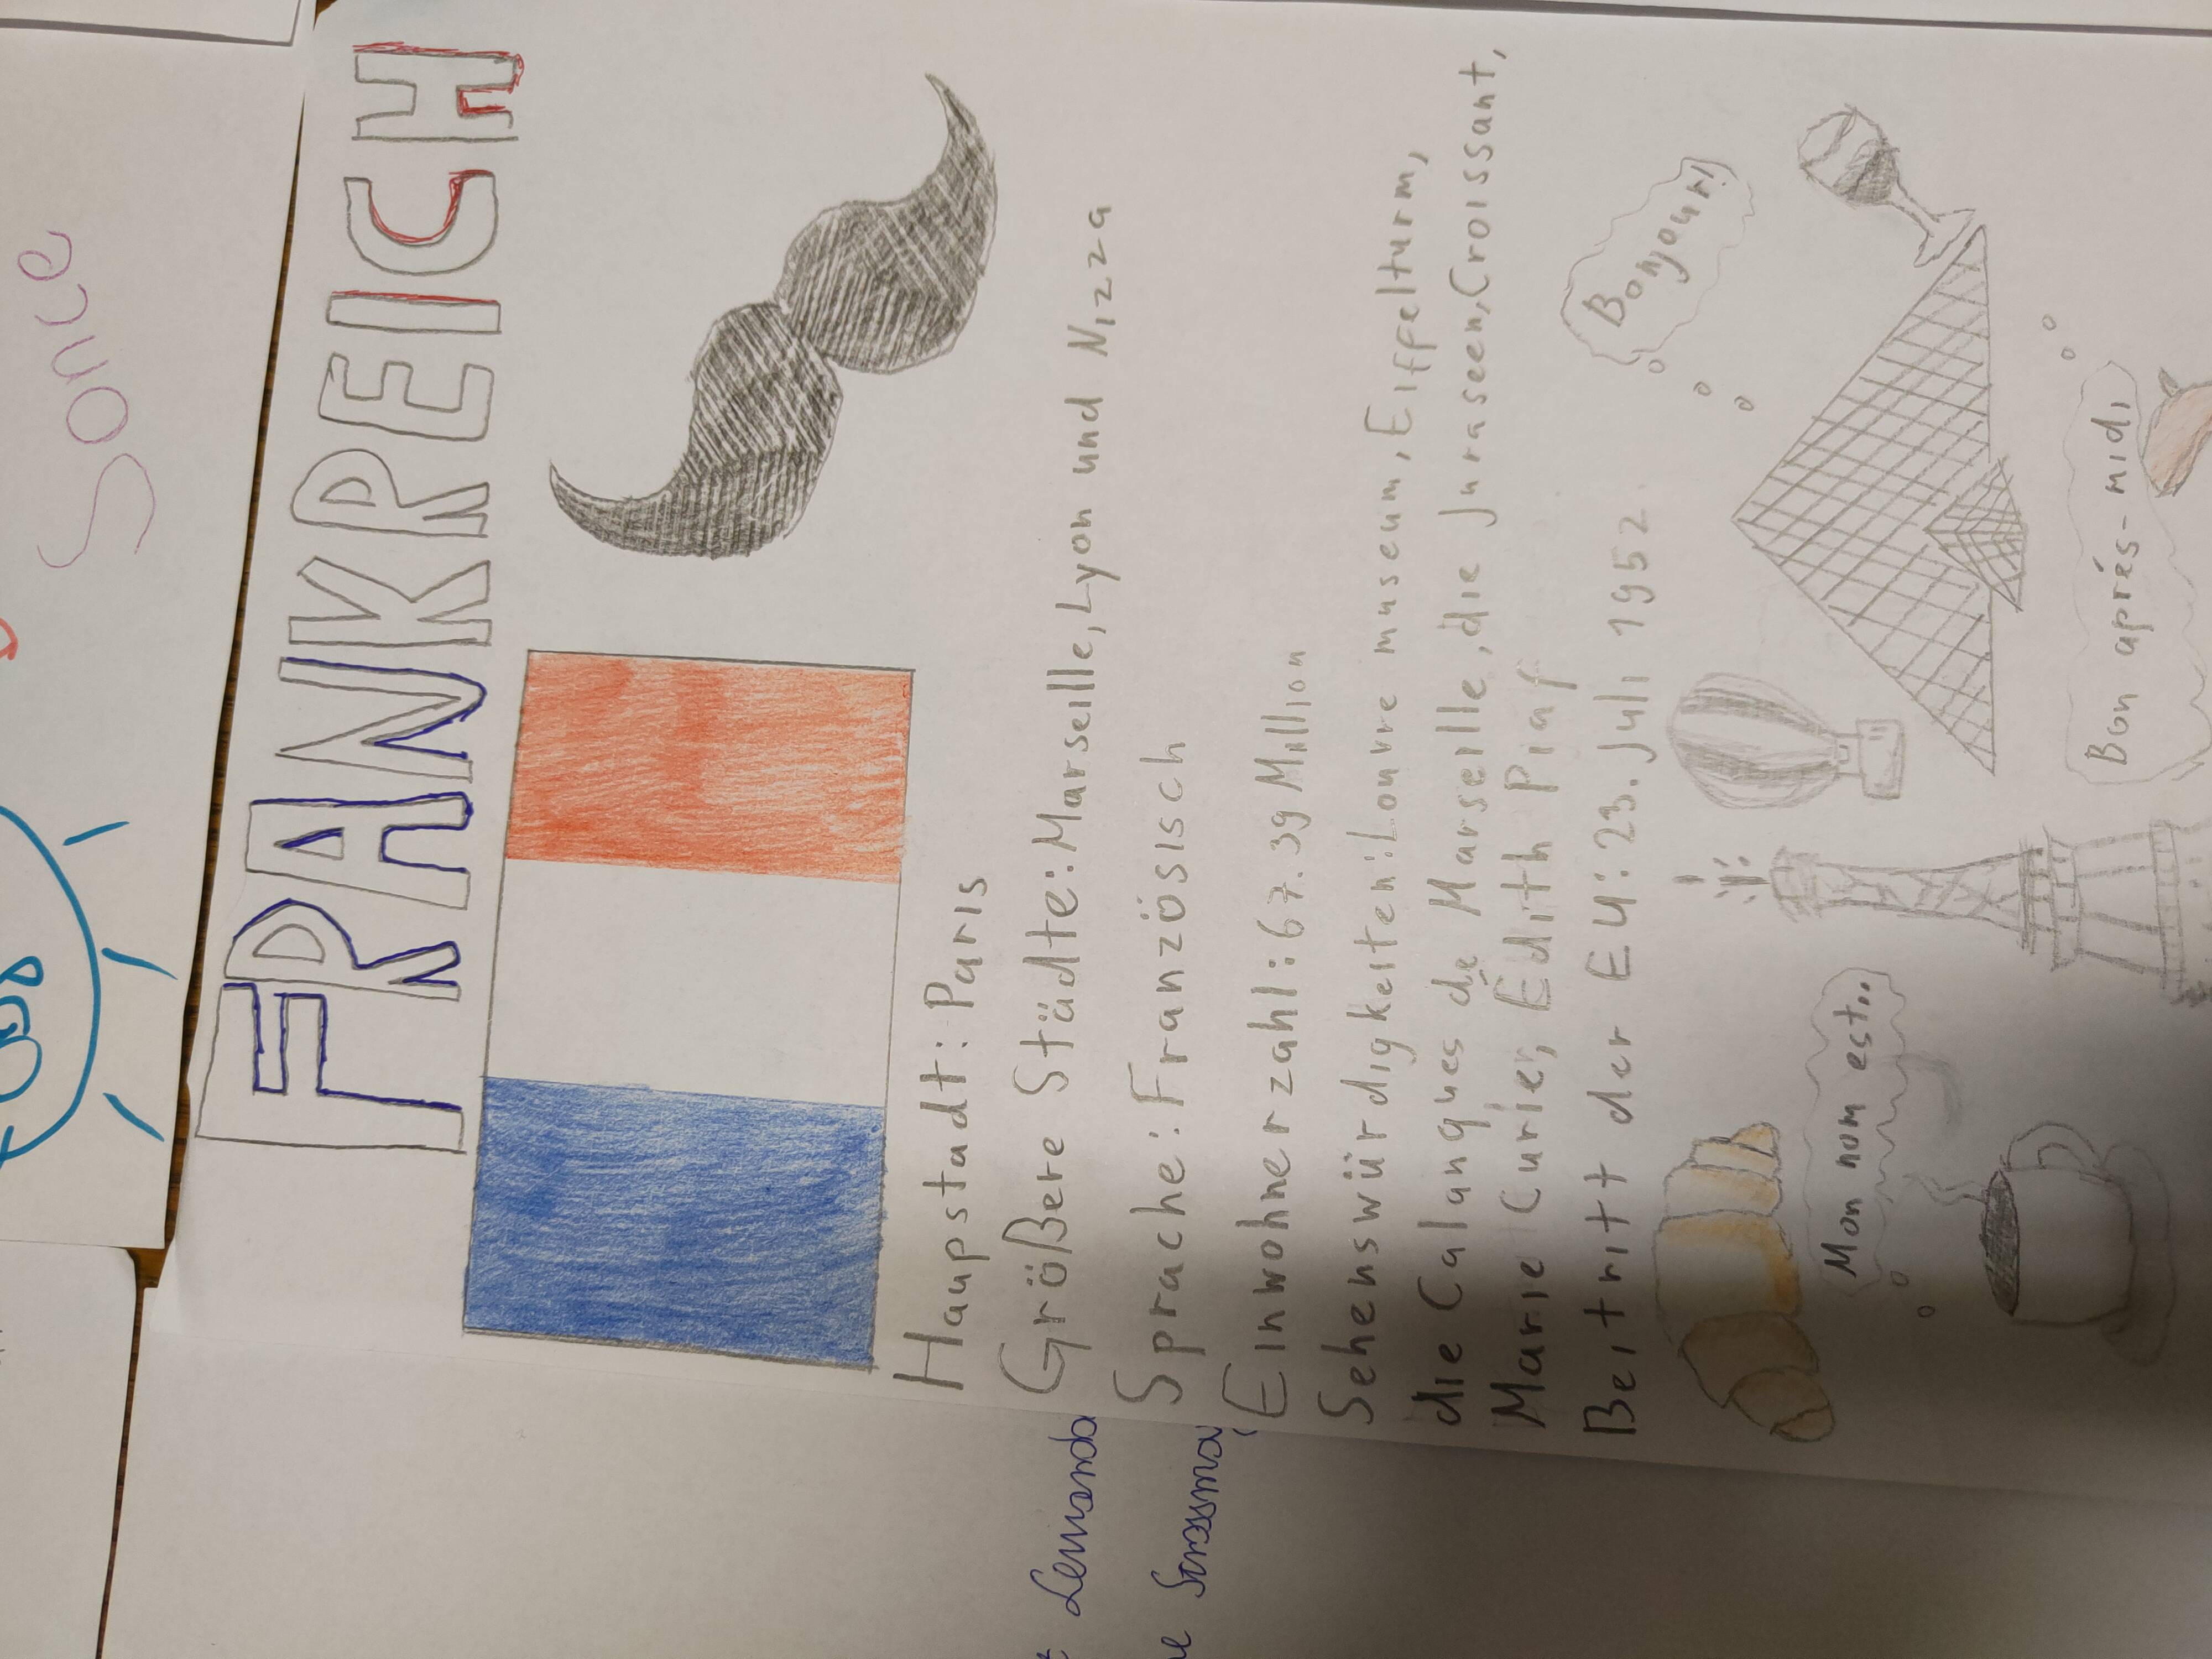 Sonce
FRANKREICH
Haupstadt: Paris
Größere Städte: Marseille, Lyon und Nizza
Sprache: Französisch
Einwohnerzahl: 67.39 Million
Sehenswürdigkeiten: Louvre museum, Eiffelturm,
die Calanques de Marseille, die Juraseen, Croissant,
Marie Curie, Edith Piaf
Beitritt der EU: 23. Juli 1952.
Bonjour!
Mon nom est...
Bon aprés-midi,